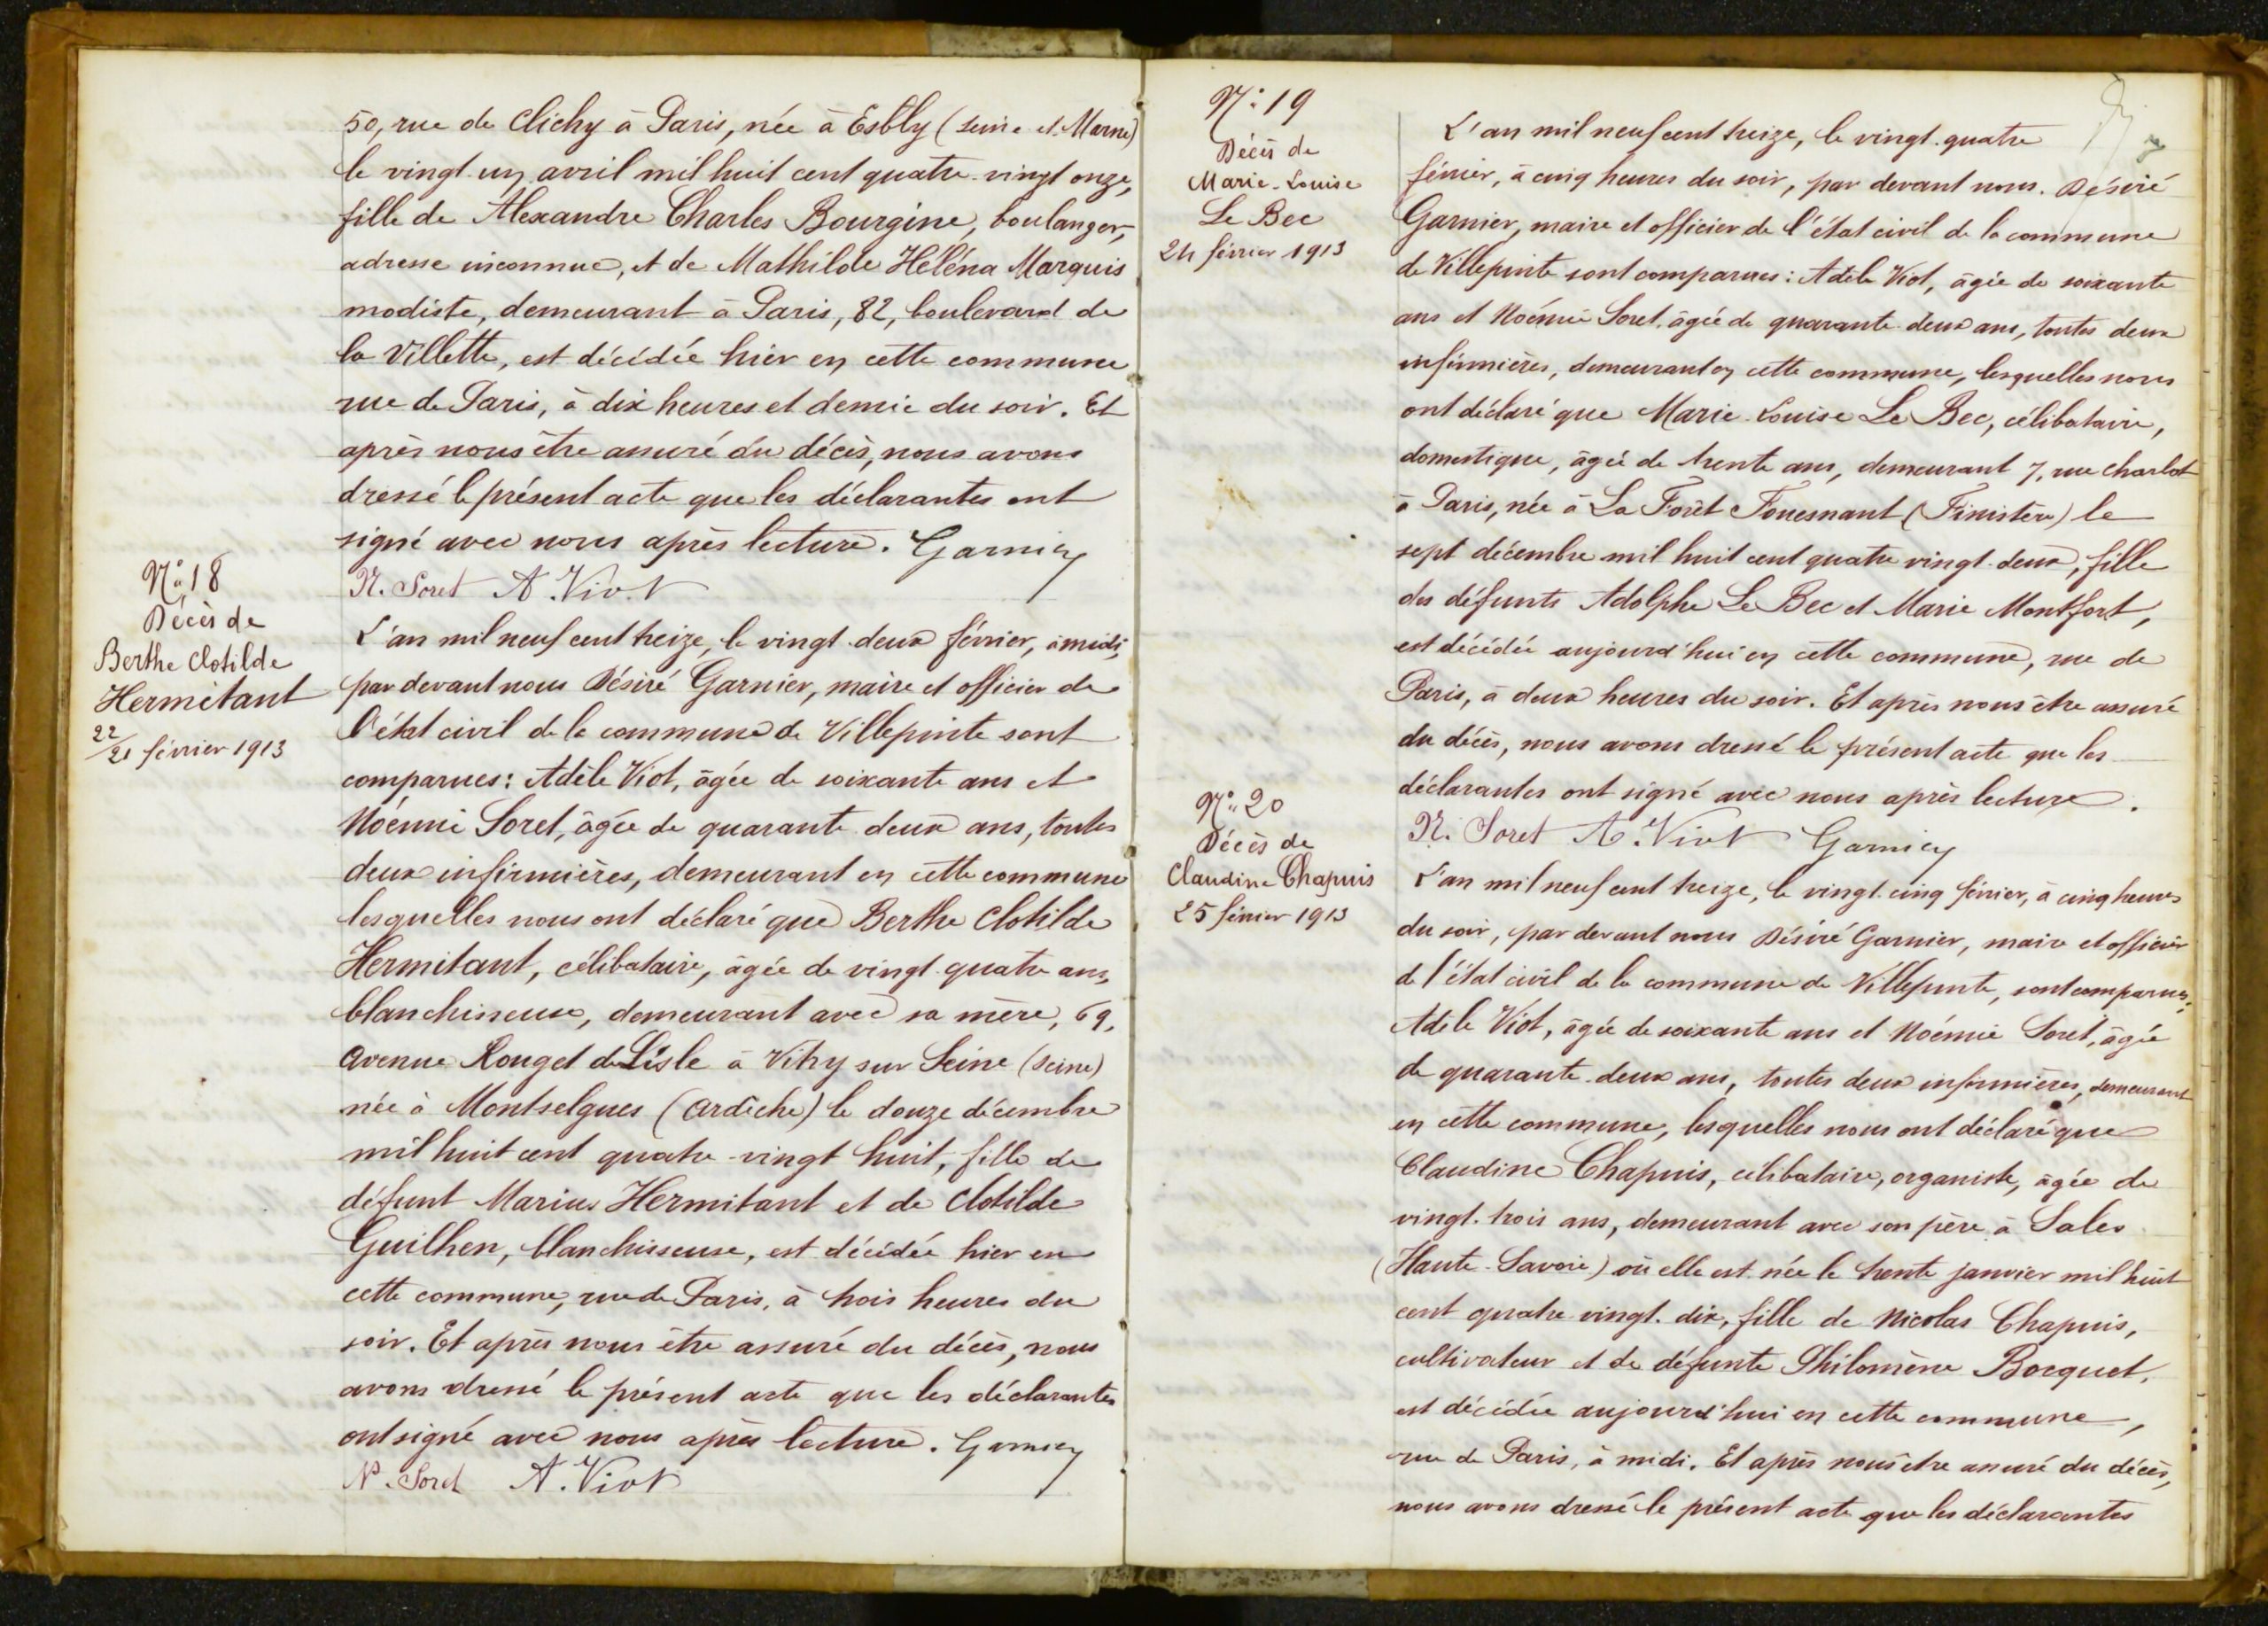 50, rue de Clichy à Paris, née à Esbly (Seine et Marne)
le vingt un avril mil huit cent quatre-vingt onze,
fille de Alexandre Charles Bourgine, boulanger,
adresse inconnue, et de Mathilde Héléna Marquis
modiste, demeurant à Paris, 82, boulevard de
la Villette, est décédée hier en cette commune
rue de Paris, à dix heures et demie du soir. Et
après nous être assuré du décès, nous avons
dressé le présent acte que les déclarantes ont
signé avec nous après lecture. Garnier
N. Soret A. Viot
N° 18
Décès de
Berthe Clotilde
Hermitant
22/21 février 1913
L'an mil neuf cent treize, le vingt-deux février, à midi,
par devant nous Désiré Garnier, maire et officier de
l'état civil de la commune de Villepinte sont
comparues: Adèle Viot, âgée de soixante ans et
Noémie Soret, âgée de quarante-deux ans, toutes
deux infirmières, demeurant en cette commune
lesquelles nous ont déclaré que Berthe Clotilde
Hermitant, célibataire, âgée de vingt-quatre ans,
blanchisseuse, demeurant avec sa mère, 69,
avenue Rouget de Lisle à Vitry sur Seine (Seine)
née à Montselgues (Ardèche) le douze décembre
mil huit cent quatre-vingt huit, fille de
défunt Marius Hermitant et de Clotilde
Guilhen, blanchisseuse, est décédée hier en
cette commune, rue de Paris, à trois heures du
soir. Et après nous être assuré du décès, nous
avons dressé le présent acte que les déclarantes
ont signé avec nous après lecture. Garnier
N. Soret A. Viot
N° 19
Décès de
Marie-Louise
Le Bec
24 février 1913
L'an mil neuf cent treize, le vingt-quatre
février, à cinq heures du soir, par devant nous. Désiré
Garnier, maire et officier de l'état civil de la commune
de Villepinte sont comparues: Adèle Viot, âgée de soixante
ans et Noémie Soret, âgée de quarante-deux ans, toutes deux
infirmières, demeurant en cette commune, lesquelles nous
ont déclaré que Marie-Louise Le Bec, célibataire,
domestique, âgée de trente ans, demeurant 7, rue Charlot
à Paris, née à La Forêt Fouesnant (Finistère) le
sept décembre mil huit cent quatre vingt-deux, fille
des défunts Adolphe Le Bec et Marie Montfort,
est décédée aujourd'hui en cette commune, rue de
Paris, à deux heures du soir. Et après nous être assuré
du décès, nous avons dressé le présent acte que les
déclarantes ont signé avec nous après lecture.
N. Soret A. Viot Garnier
N° 20
Décès de
Claudine Chapuis
25 février 1913
L'an mil neuf cent treize, le vingt-cinq février, à cinq heures
du soir, par devant nous Désiré Garnier, maire et officier
de l'état civil de la commune de Villepinte, sont comparues:
Adèle Viot, âgée de soixante ans et Noémie Soret, âgée
de quarante-deux ans, toutes deux infirmières, demeurant
en cette commune, lesquelles nous ont déclaré que
Claudine Chapuis, célibataire, organiste, âgée de
vingt-trois ans, demeurant avec son père à Sales
(Haute-Savoie) où elle est née le trente janvier mil huit
cent quatre vingt-dix, fille de Nicolas Chapuis,
cultivateur et de défunte Philomène Bocquet,
est décédée aujourd'hui en cette commune,
rue de Paris, à midi. Et après nous être assuré du décès,
nous avons dressé le présent acte que les déclarantes